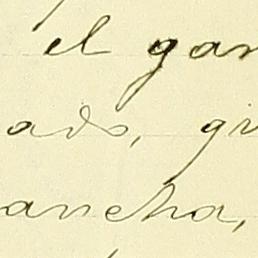 el gan
ado, gr
ancha,